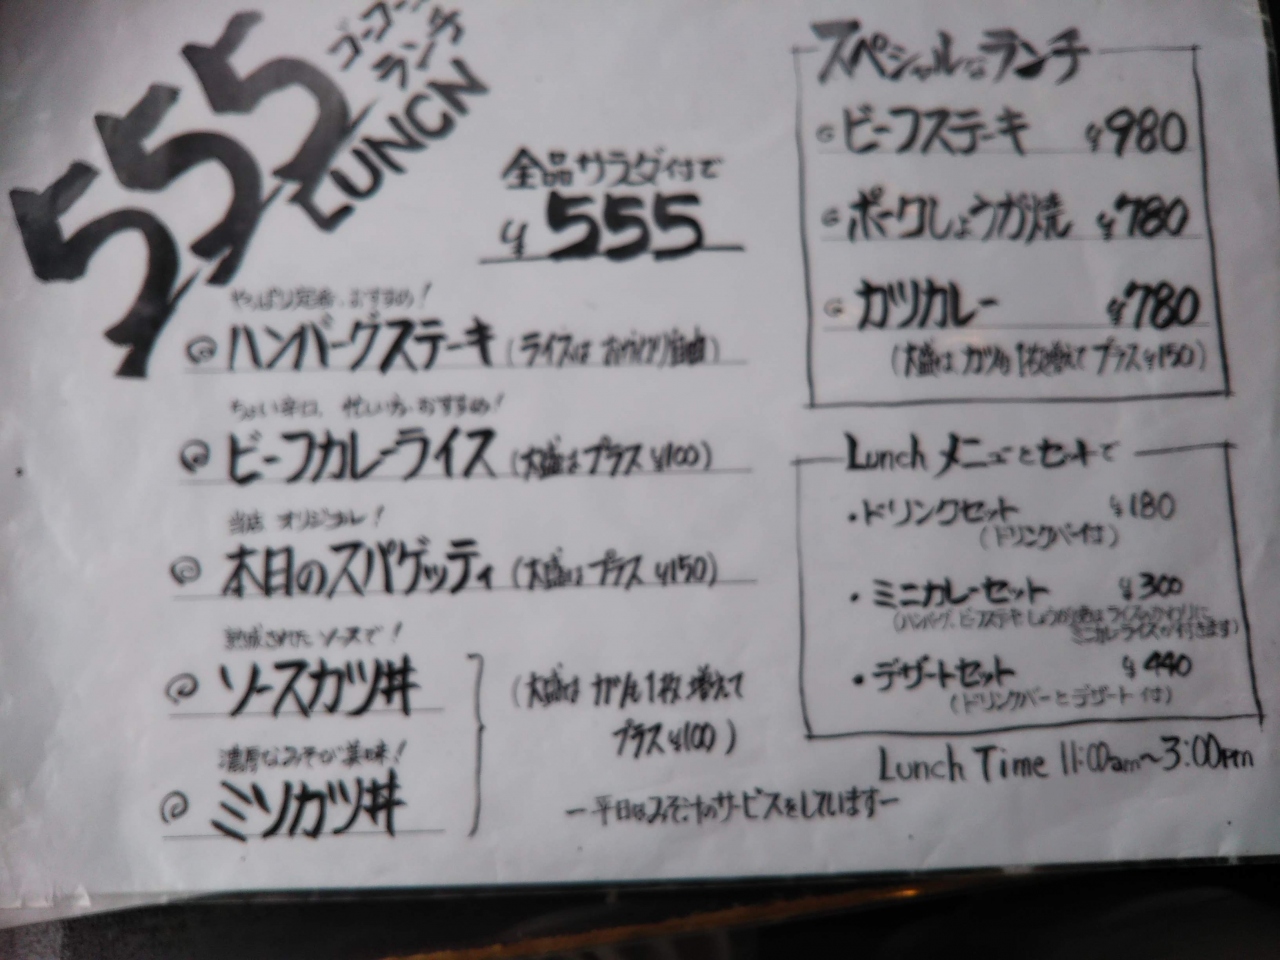 555
ゴーゴー
ランチ
LUNCH
全品サラダ付で
¥555
やっぱり定番、おすすめ!
ハンバーグステーキ (ライスはおかわり自由)
ちょい辛口、忙しい方おすすめ!
ビーフカレーライス (大盛はプラス¥100)
当店 オリジナル!
本日のスパゲッティ (大盛はプラス ¥150)
熟成させた ソースで!
ソースカツ丼
濃厚なみそが美味!
ミソカツ丼
(大盛は カツも1枚増えて
プラス¥100)
ー平日はみそ汁のサービスをしていますー
スペシャルなランチ
ビーフステーキ ¥980
ポークしょうが焼 ¥780
カツカレー ¥780
(大盛は、カツも1枚増えて プラス¥150)
Lunch メニューとセットで
・ドリンクセット ¥180
(ドリンクバー付)
・ミニカレーセット ¥300
(ハンバーグ、ビーフステーキ、しょうが焼はライスのかわりに
ミニカレーライスが付きます)
・デザートセット ¥440
(ドリンクバーとデザート付)
Lunch Time 11:00am~3:00pm